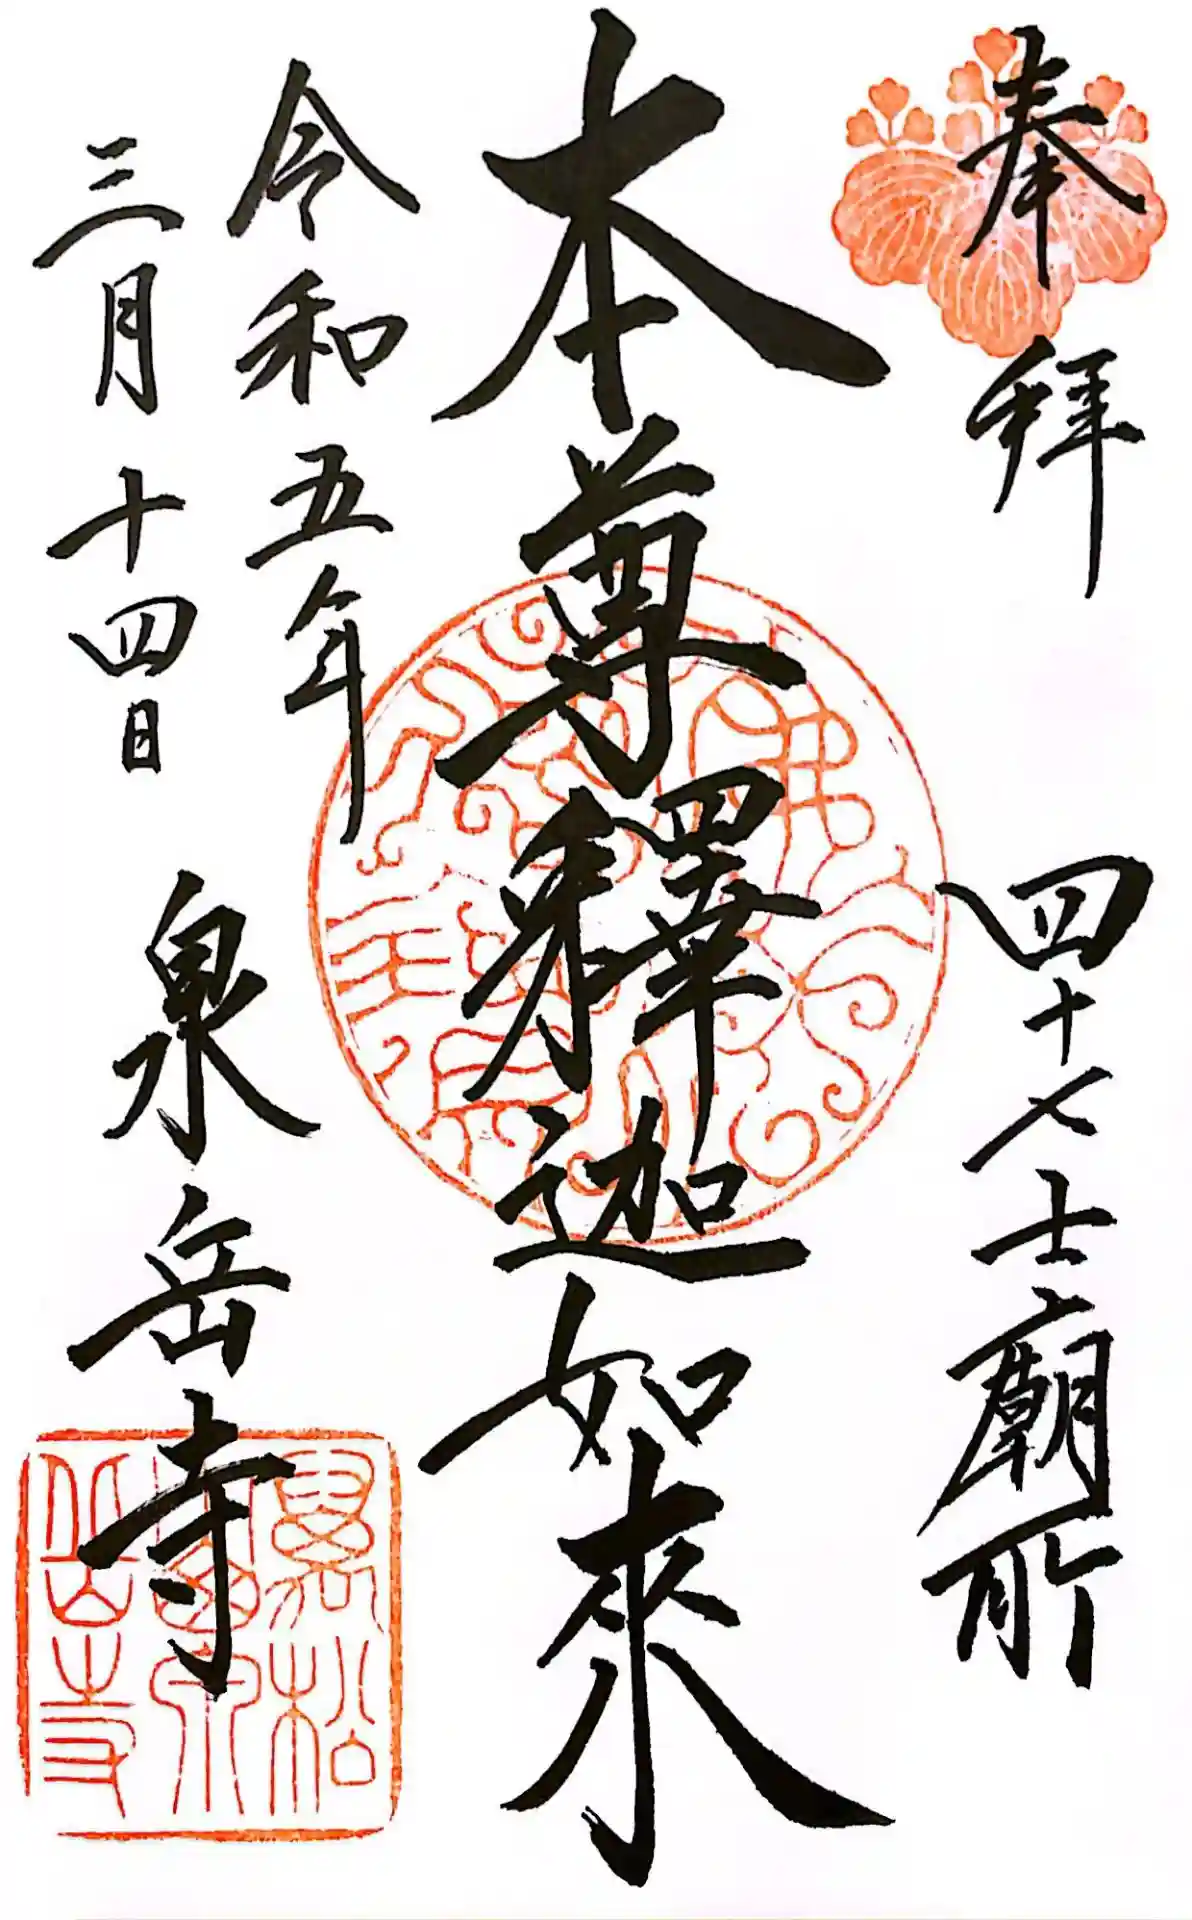 奉拝
四十七士廟所
本尊釋迦如來
令和五年
三月十四日
泉岳寺
萬松
山泉
岳寺